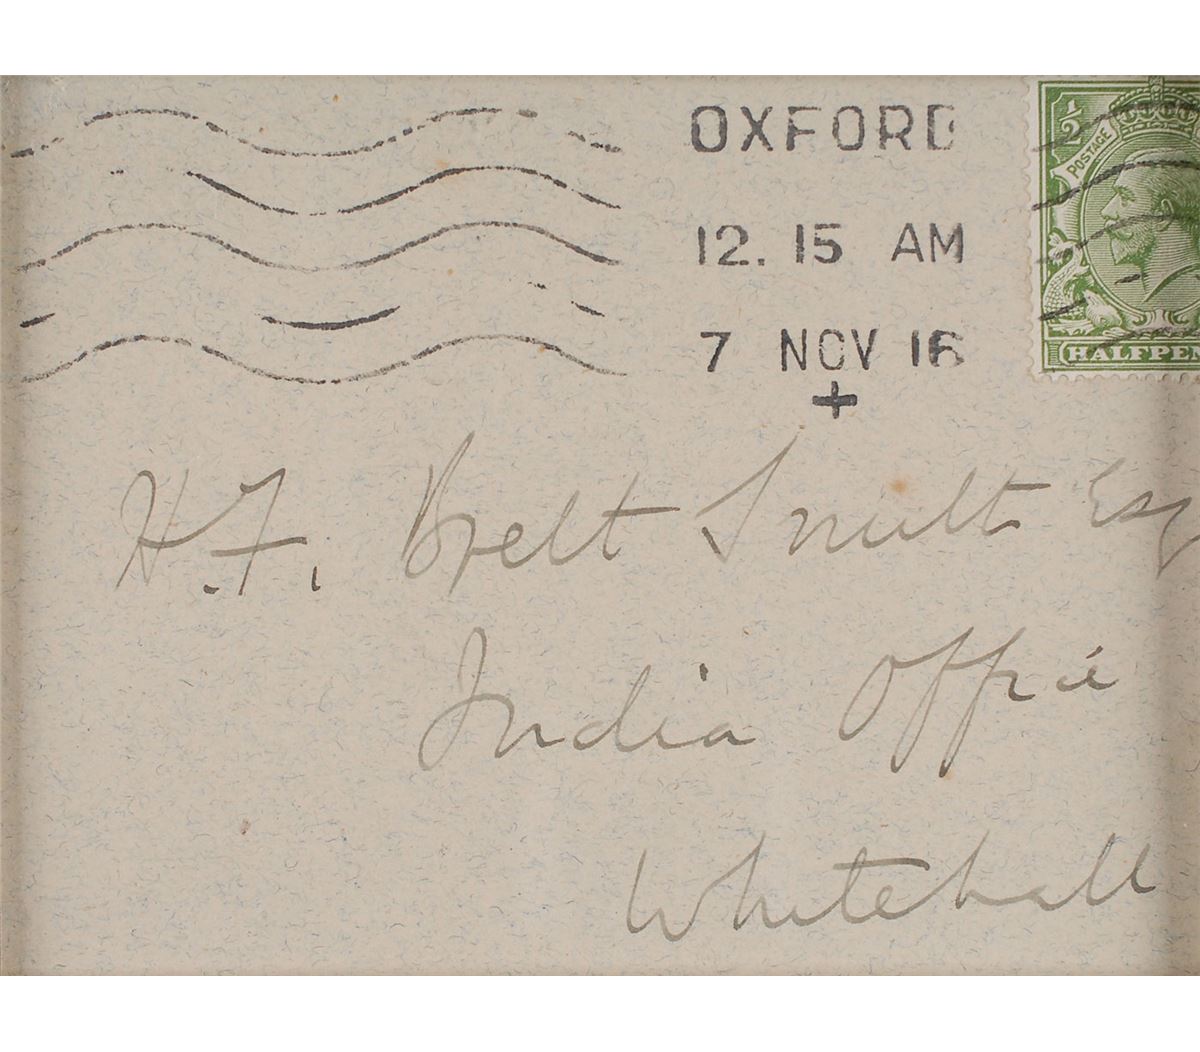 OXFORD
12. 15 AM
7 NOV 16
+
½
POSTAGE
HALFPEN
H.F. Brett Smith Esq
India Office
Whitehall